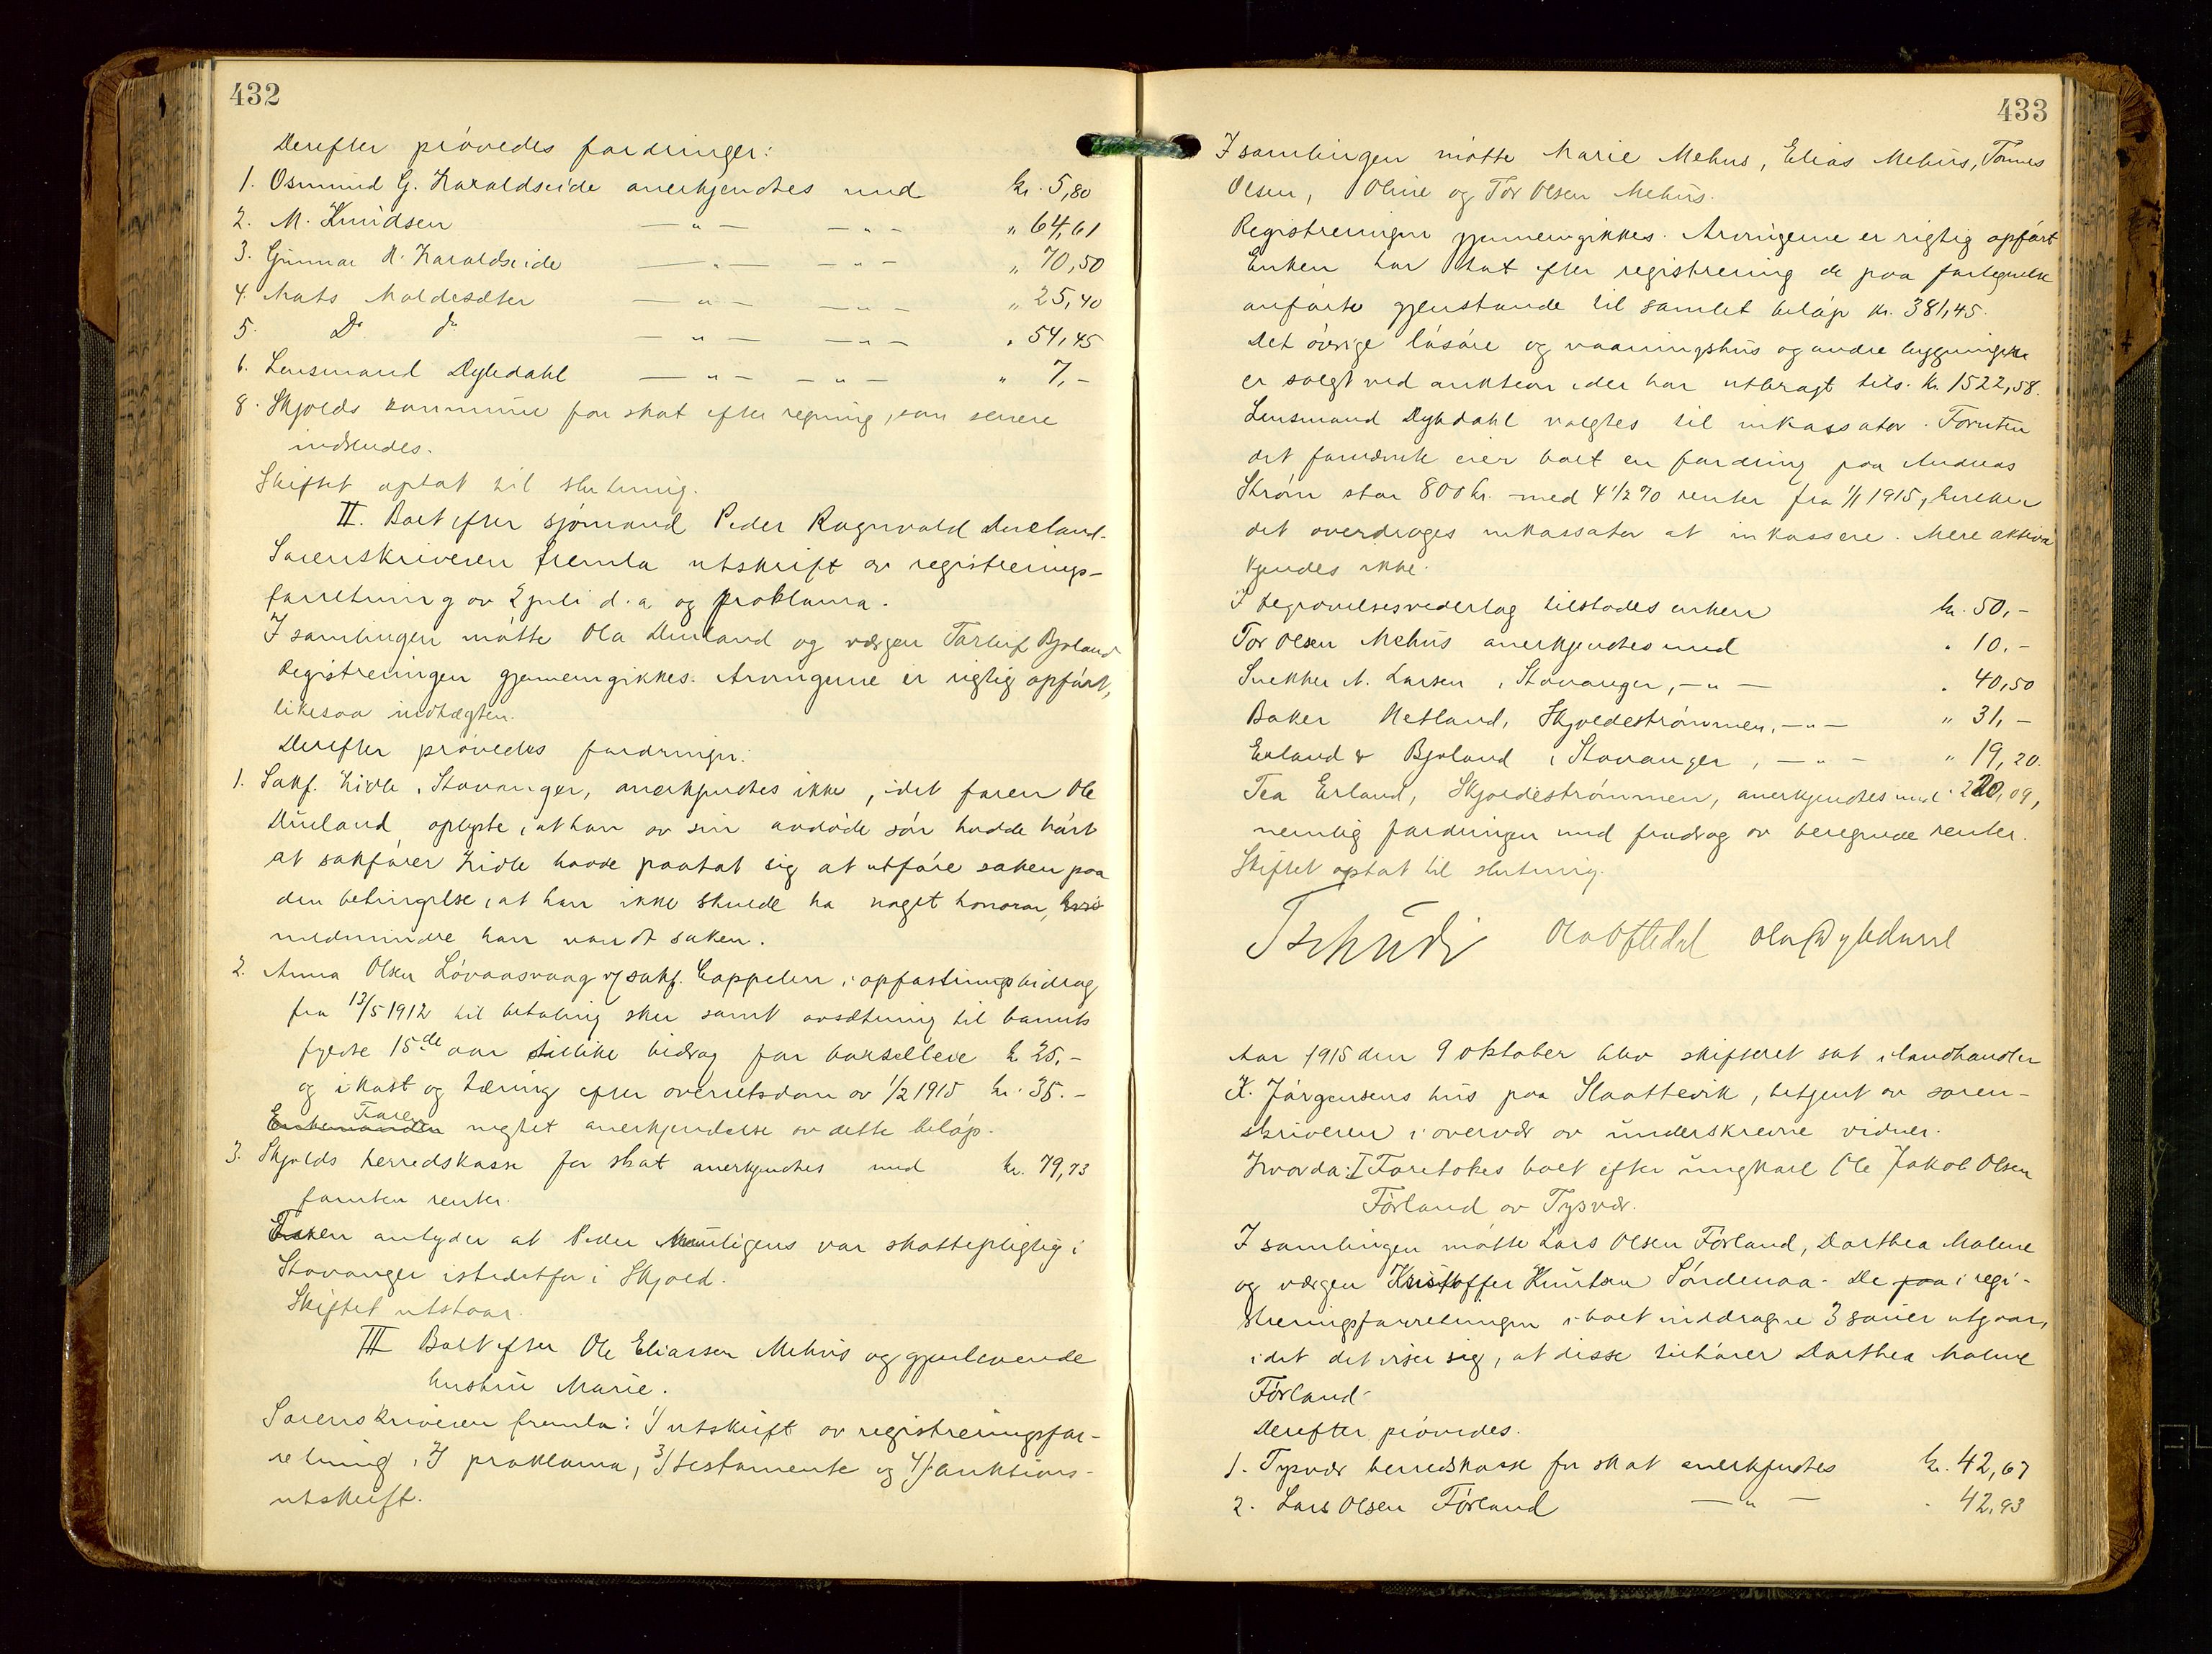 432
Derefter prøvedes fordringer:
1. Osmund G. Haraldseide anerkjendtes med kr. 5,80
2. M. Knudsen — " — — " — " 64,61
3. Gunnar K. Haraldseide — " — — " — " 70,50
4. Mats Moldesæter — " — — " — " 25,40
5. Do do — " — — " — " 54,45
6. Lensmand Dybdahl — " — — " — " 7,-
8. Skjolds kommune for skat efter regning, som senere
indsendes.
Skiftet optat til slutning.
II. Boet efter sjømand Peder Ragnvald Dueland.
Sorenskriveren fremla utskrift av registrerings-
forretning av 2 juli d. a. og proklama.
I samlingen møtte Ola Dueland og vergen Torleif Bjoland
Registreringen gjennemgikkes. Arvingerne er rigtig opført,
likesaa indtægten.
Derefter prøvedes fordringer:
1. Sakf. Lidle, Stavanger, anerkjendtes ikke, idet faren Ole
Dueland oplyste, at han av sin avdøde søn hadde hørt
at sakfører Lidle havde paatat sig at utføre saken paa
den betingelse, at han ikke skulde ha noget honorar, hvis
medmindre han vandt saken.
2. Anna Olsen Løvaasvaag v/ sakf. Cappelen, i opfostringsbidrag
fra 13/5 1912 til betaling sker samt avsætning til barnets
fyldte 15de aar tillike bidrag for barselleie kr 25,-
og i kost og tæring efter overretsdom av 1/2 1915 kr. 35.-
Enkemanden Faren negtet anerkjendelse av dette beløp.
3. Skjolds herredskasse for skat anerkjendtes med kr. 79,73
foruten renter.
Faren antyder at Peder muligens var skattepligtig i
Stavanger istedetfor i Skjold.
Skiftet utstaar.
III Boet efter Ole Eliassen Mehus og gjenlevende
hustru Marie.
Sorenskriveren fremla: 1/ utskrift av registreringsfor-
retning, 2/ proklama, 3/ testamente og 4/ auktions-
utskrift.
433
I samlingen møtte Marie Mehus, Elias Mehus, Tønnes
Olsen, Oline og Tor Olsen Mehus.
Registreringen gjennemgikkes. Arvingerne er rigtig opført
Enken har tat efter registrering de paa fortegnelse
anførte gjenstande til samlet beløp kr. 381,45.
Det øvrige løsøre og vaaningshus og andre bygninger
er solgt ved auktion, der har utbragt tils. kr. 1522,58.
Lensmand Dybdahl valgtes til inkassator. Foruten
det foranførte eier boet en fordring paa Andreas
Strøm stor 800 kr. med 4 1/2 % renter fra 1/1 1915, hvilken
det overdrages inkassator at inkassere. Mere aktiva
kjendes ikke.
I begravelsesvederlag tilstodes enken kr. 50,-
Tor Olsen Mehus anerkjendtes med " 10.-
Snekker A. Larsen, Stavanger, — " — " 40,50
Baker Hetland, Skjoldestrømmen, — " — " 31,-
Erland & Bjoland i Stavanger, — " — " 19,20.
Tea Erland, Skjoldestrømmen, anerkjendtes med " 220,09,
nemlig fordringen med fradrag av beregnede renter.
Skiftet optat til slutning.
Tschudi Ola Oftedal Ola Dybdahl
Aar 1915 den 9 oktober blev skifteret sat i landhandler
K. Jørgensens hus paa Slaattevik, betjent av soren-
skriveren i overvær av underskrevne vidner.
Hvorda: I Foretokes boet efter ungkarl Ole Jakob Olsen
Førland av Tysvær.
I samlingen møtte Lars Olsen Førland, Dorthea Malene
og vergen Kristoffer Knutsen Søndenaa. De paa i regi-
streringsforretningen i boet inddragne 3 sauer utgaar,
idet det viser sig, at disse tilhører Dorthea Malene
Førland.
Derefter prøvedes.
1. Tysvær herredskasse for skat anerkjendtes kr. 42,67
2. Lars Olsen Førland — " — " 42,93